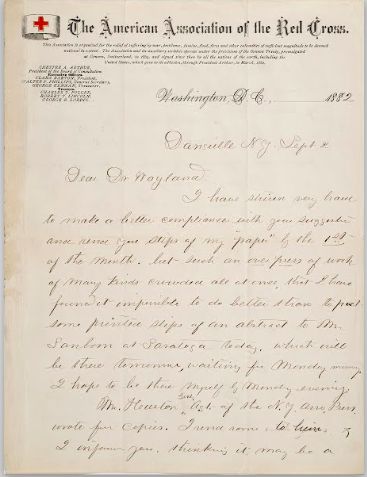 The American Association of the Red Cross.
This Association is organized for the relief of suffering by war, pestilence, famine, fires, and other calamities of sufficient magnitude to be deemed
national in extent. The Association and its auxiliary societies operate under the provisions of the Geneva Treaty, promulgated
at Geneva, Switzerland, in 1864, and signed since then by all the nations of the earth, including the
United States, which gave its
CHESTER A. ARTHUR,
President of the Board of Consultation
Executive Officers
CLARA BARTON, President,
WALTER P. PHILLIPS, General Secretary,
GEORGE KENNAN, Treasurer,
Trustees
CHARLES J. FOLGER,
ROBERT T. LINCOLN,
GEORGE B. LORING.
Washington D.C., 1882
Dansville N.Y. Sept
Dear Dr Wayland.
I have striven very hard
to make a better compliance with your suggestion
and send you slips of my "paper" by the 1st
of the month. but such an over press of work
of many kinds crowded all at once, that I have
found it impossible to do better than to post
some printed slips of an abstract to Mr.
Sanborn at Saratoga today. which will
be there tomorrow, waiting for Monday morning
I hope to be there myself by Monday evening.
Mr. Houston Agt. of the N.Y. Press
wrote for copies. I send some to him
I inform you. thinking it may be a